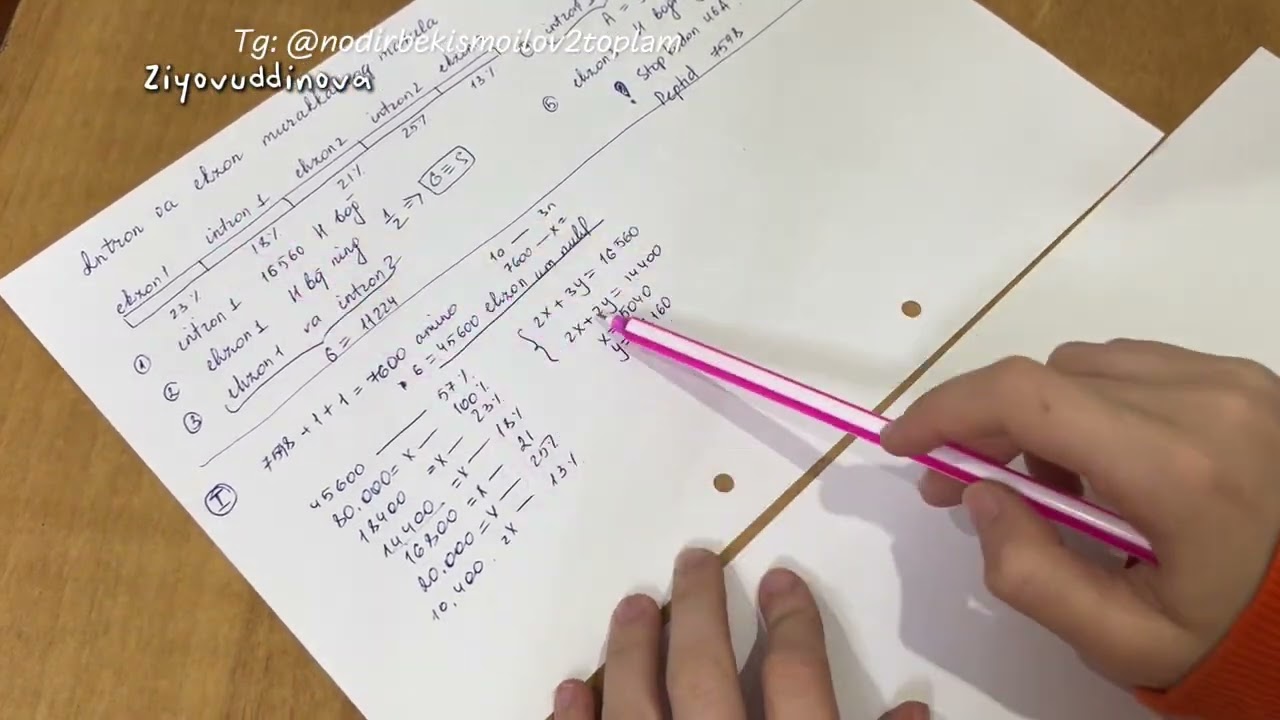 Tg: @nodirbekismoilov2toplam
Ziyovuddinova
Intron va ekzon murakkab masala
ekzon 1 intron 1 ekzon 2 intron 2 ekzon
23% 18% 21% 25% 13%
① intron 1 16560 H bog
② ekzon 1 H bog ning 1/2 => G = S
③ ekzon 1 va intron 2
G = 11224
A =
⑤ ekzon H bog
! Stop kodon UGA
Peptid 7598
7598 + 1 + 1 = 7600 amino
· 6 = 45600 ekzon um nukl
10 — 3n
7600 — x =
I
45600 — 57%
80.000 = x — 100%
18400 = x — 23%
14400 = x — 18%
16800 = x — 21
20.000 = x — 25%
10.400 x — 13%
{ 2x + 3y = 16560
2x + 2y = 14400
x = 5040
y = 160